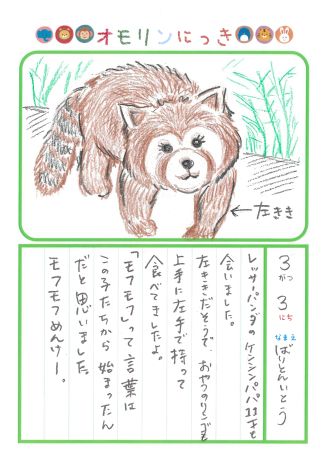 オモリンにっき
←左きき
3がつ 3にち
なまえ ばりとんいとう
レッサーパンダのケンシンパパ11才と
会いました。
左ききだそうで、おやつのリンゴを
上手に左手で持って
食べてましたよ。
「モフモフ」って言葉は
この子たちから始まったん
だと思いました。
モフモフめんけー。